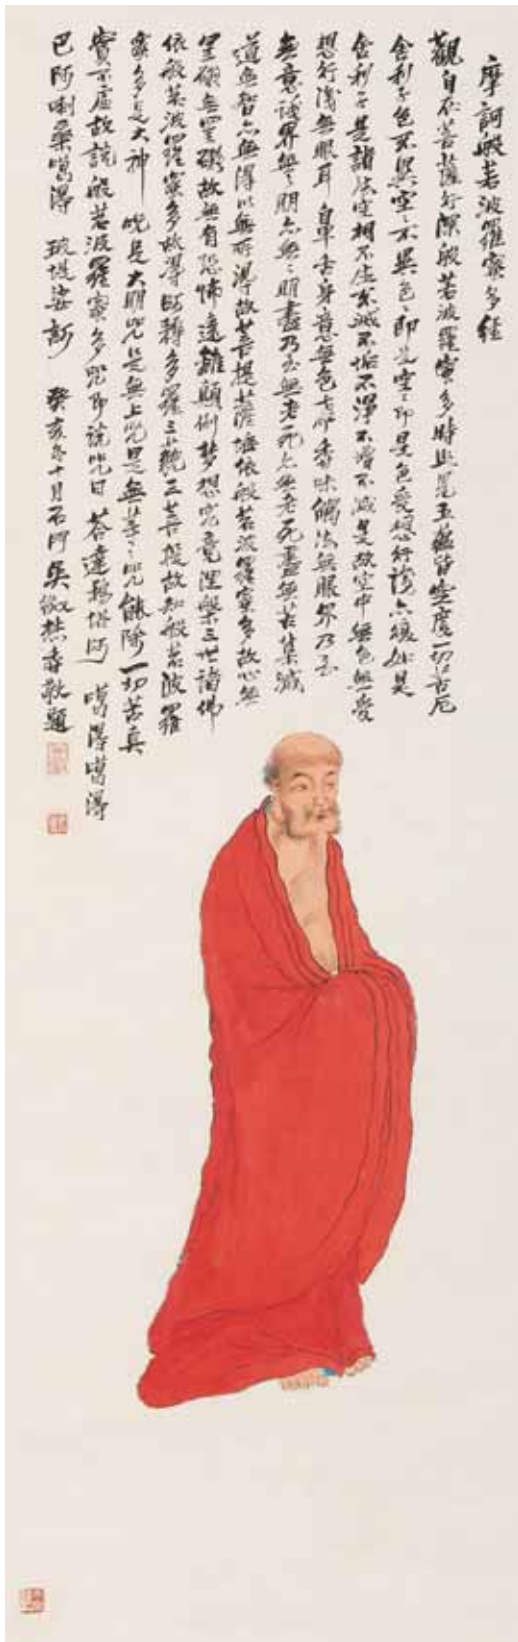 摩訶般若波羅蜜多經
觀自在菩薩行深般若波羅蜜多時照見五蘊皆空度一切苦厄
舍利子色不異空不異色色即是空空即是色受想行識亦復如是
舍利子是諸法空相不生不滅不垢不淨不增不減是故空中無色無受
想行識無眼耳鼻舌身意無色聲香味觸法無眼界乃至
無意識界無無明亦無無明盡乃至無老死亦無老死盡無苦集滅
道無智亦無得以無所得故菩提薩埵依般若波羅蜜多故心無
罣礙無罣礙故無有恐怖遠離顛倒夢想究竟涅槃三世諸佛
依般若波羅蜜多故得阿耨多羅三藐三菩提故知般若波羅
蜜多是大神咒是大明咒是無上咒是無等等咒能除一切苦真
實不虛故說般若波羅蜜多咒即說咒曰 答達鴉塔阿 噶得噶得
巴阿喇桑噶得 玻堤莎訶 癸亥冬十月石門吳徵焚香敬題